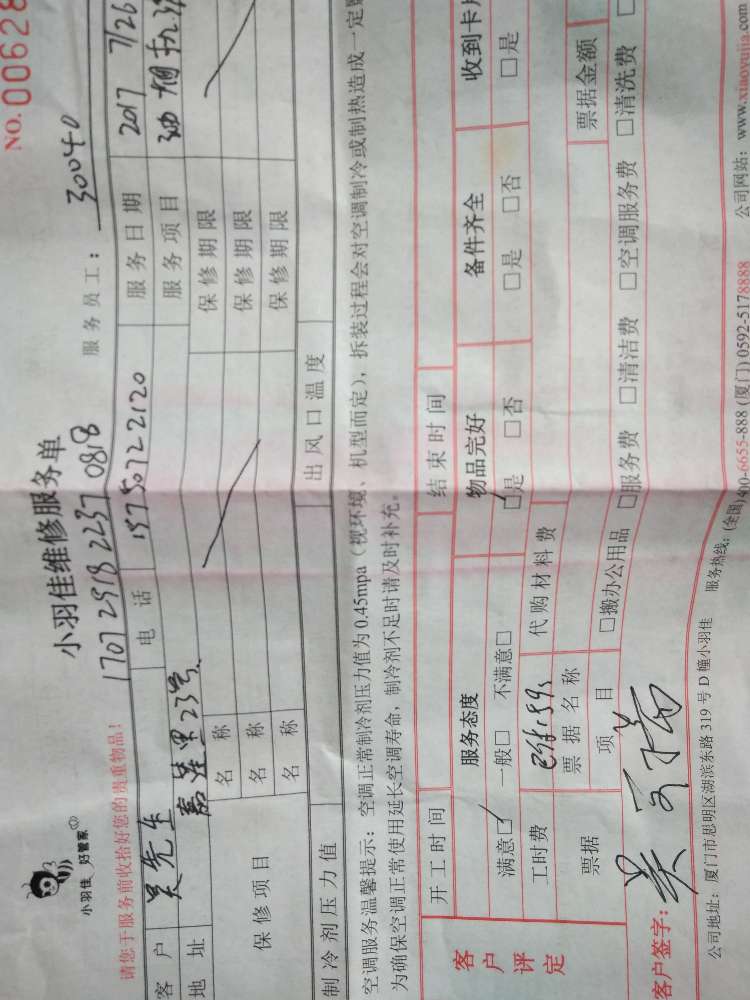 NO.00628
小羽佳 好管家
小羽佳维修服务单
1707 2918 2237 0818
服务员工: 30040
请您于服务前收拾好您的贵重物品!
客户 吴先生 电话 157 5072 2120 服务日期 2017 7/26
地址 嘉莲里23号 服务项目
保修项目 名称 保修期限
名称 保修期限
名称 保修期限
制冷剂压力值 出风口温度
空调服务温馨提示: 空调正常制冷剂压力值为0.45mpa(视环境、机型而定), 拆装过程会对空调制冷或制热造成一定
为确保空调正常使用延长空调寿命, 制冷剂不足时请及时补充。
开工时间 结束时间
客户评定 服务态度 物品完好 备件齐全 收到卡片
满意☑ 一般□ 不满意□ ☑是 □否 □是 □否 □是
工时费 代购材料费
票据 票据名称 票据金额
项目 □搬办公用品 □服务费 □清洁费 □空调服务费 □清洗费 □
客户签字: 吴
公司地址: 厦门市思明区湖滨东路319号D幢小羽佳 服务热线: (全国)400-6655-888 (厦门)0592-5178888 公司网站: www.xiaoyujia.com